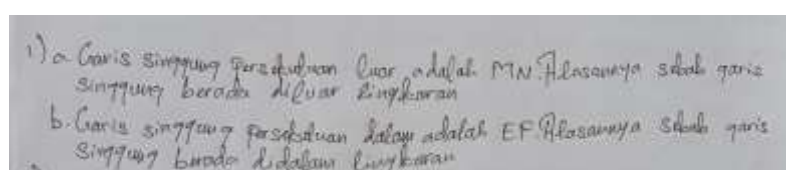 1) a. Garis singgung persekutuan luar adalah MN. Alasannya sebab garis
singgung berada diluar lingkaran
b. Garis singgung persekutuan dalam adalah EF. Alasannya sebab garis
singgung berada didalam lingkaran